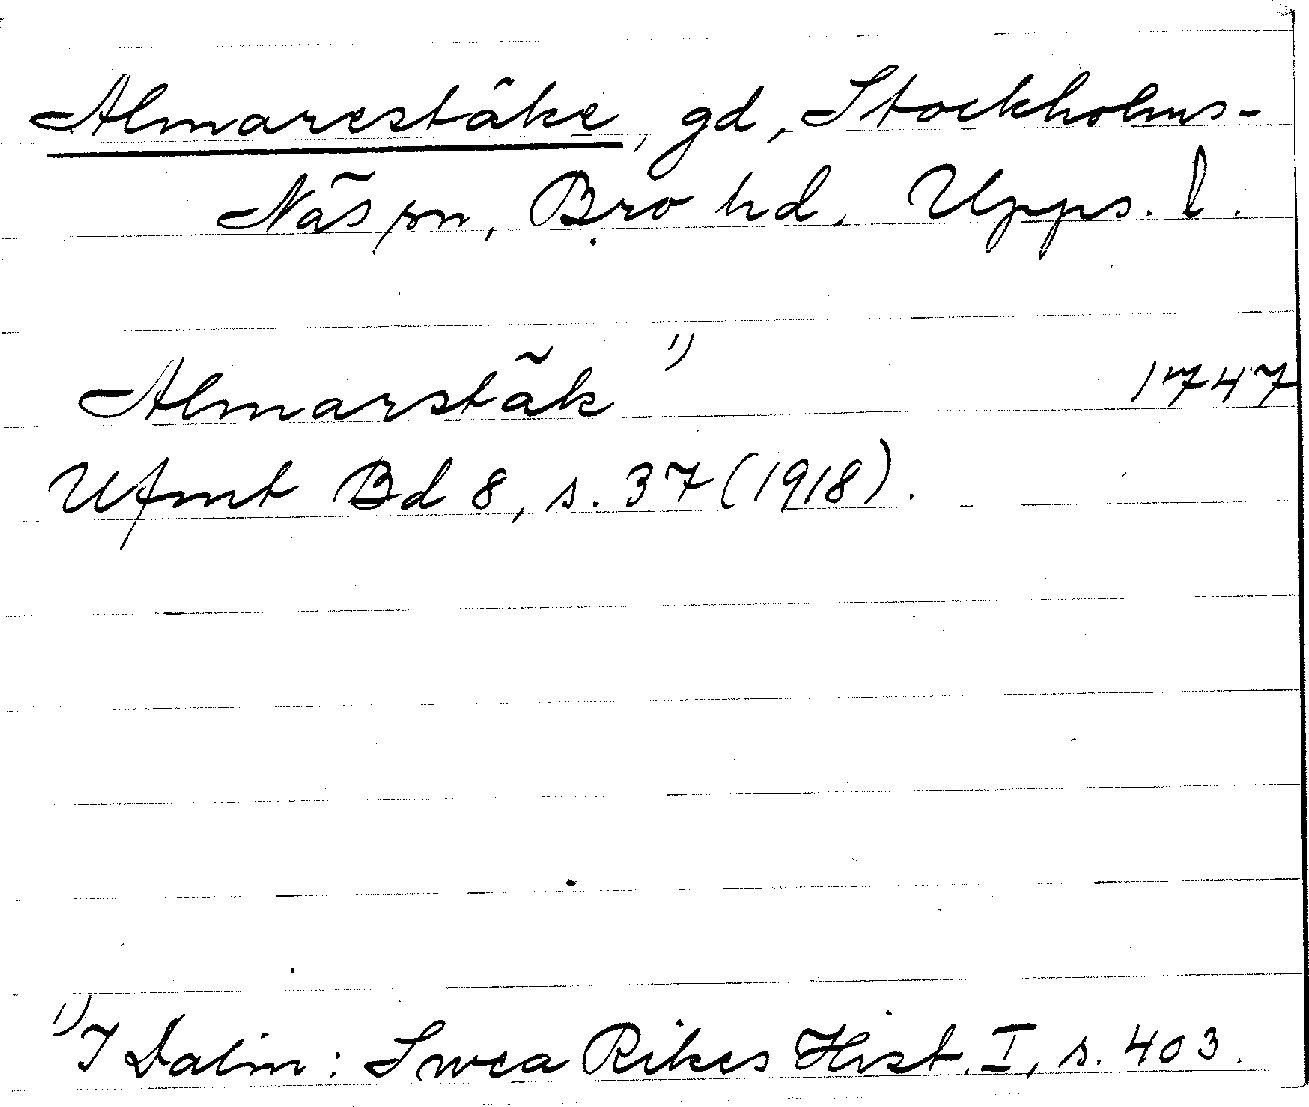 Almarestäke, gd, Stockholms-
Näs sn, Bro hd, Upps. l.
Almarstäk 1) 1747
Ufmt Bd 8, s. 37 (1918).
1) I Dalin: Swea Rikes Hist. I, s. 403.